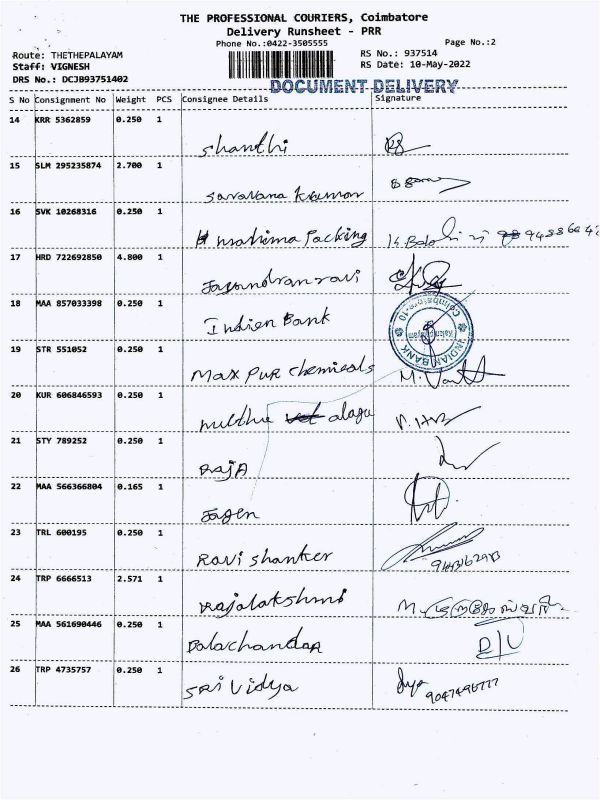 THE PROFESSIONAL COURIERS, Coimbatore
Delivery Runsheet - PRR
Phone No.:0422-3505555 Page No.:2
Route: THETHEPALAYAM RS No.: 937514
Staff: VIGNESH RS Date: 10-May-2022
DRS No.: DCJB93751402
DOCUMENT DELIVERY
S No Consignment No Weight PCS Consignee Details Signature
14 KRR 5362859 0.250 1
Shanthi
15 SLM 295235874 2.700 1
Saravana Kumar
16 SVK 10268316 0.250 1
Packing
17 HRD 722692850 4.800 1
18 MAA 857033398 0.250 1
Indien Bank
INDIAN BANK Coimbatore-10
19 STR 551052 0.250 1
Max Pur Chemicals
20 KUR 606846593 0.250 1
muthu alagu
21 STY 789252 0.250 1
RajA
22 MAA 566366804 0.165 1
Jagen
23 TRL 600195 0.250 1
Ravi shanker
24 TRP 6666513 2.571 1
Rajalakshmi
25 MAA 561690446 0.250 1
Balachandar D/U
26 TRP 4735757 0.250 1
SRi Vidya